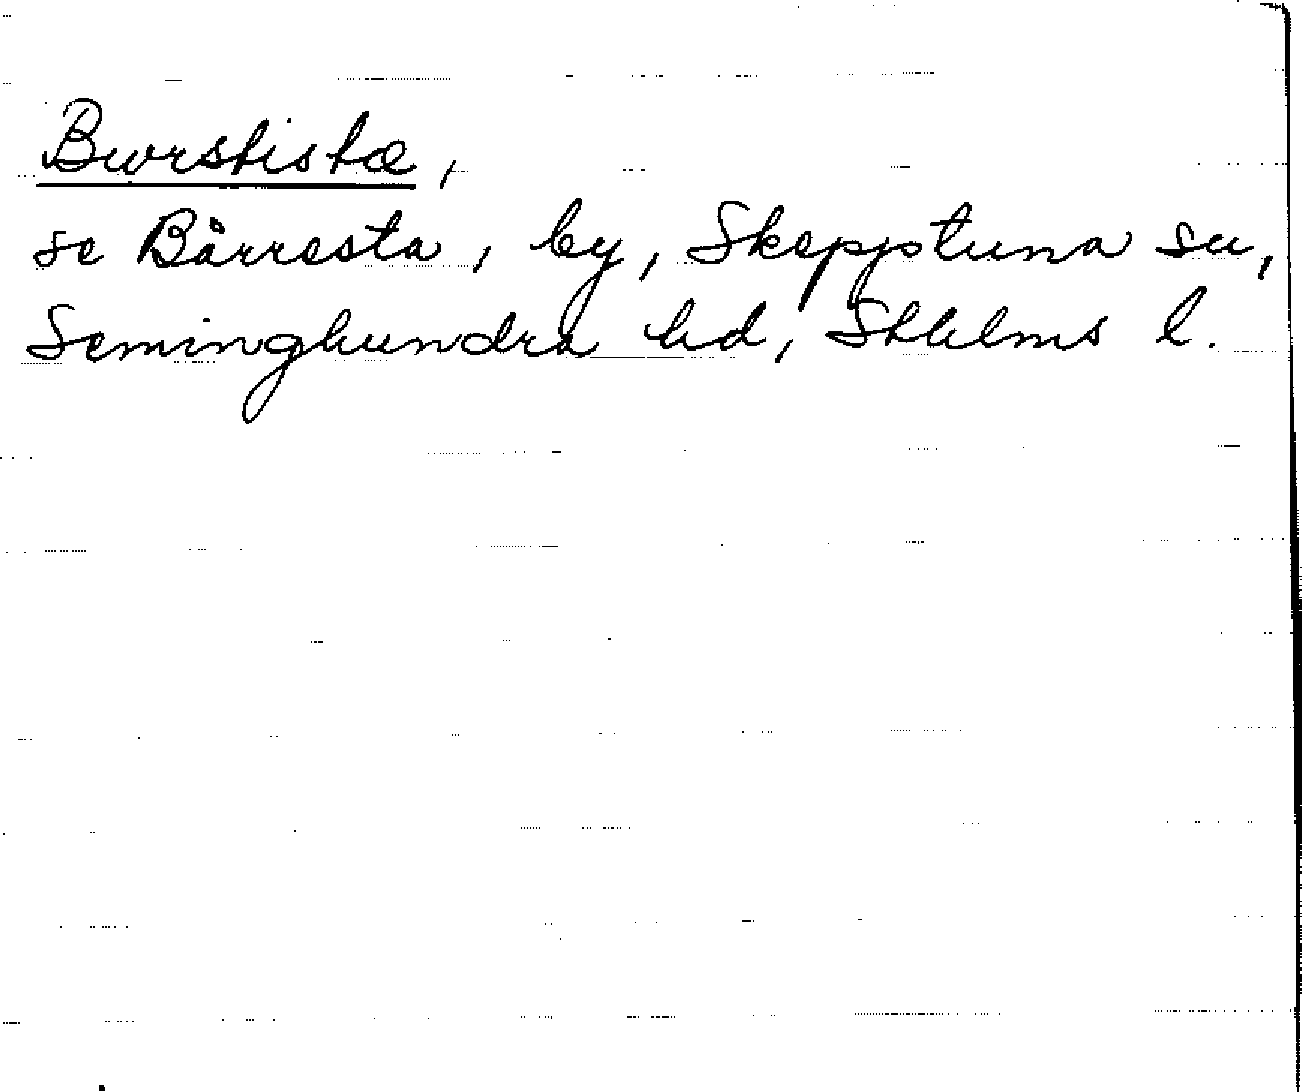 Bworstistæ,
se Bårresta, by, Skepptuna sn,
Seminghundra hd, Sthlms l.